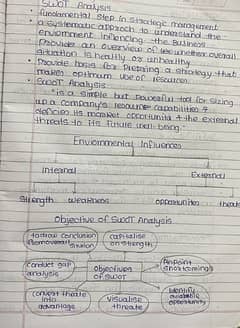 SWOT Analysis
• fundamental step in strategic management
• a systematic approach to understand the
environment influencing the business
Provides an overview of whether overall
situation is healthy or unhealthy
• Provide basis for preparing a strategy that
makes optimum use of resources.
• SWOT Analysis
"is a simple but powerful tool for sizing
up a company's resource capabilities &
deficien its market opportunits & the external
threats to its future well-being."
Environmental Influences
Internal External
Strength weakness opportunites threats
Objective of SWOT Analysis
to draw conclusion
from overall
situation
capitalise
on strength
conduct gap
analysis
objectives
of SWOT
Pinpoint
shortcomings
convert threats
into
advantage
Visualise
threats
Identify
available
opportunity